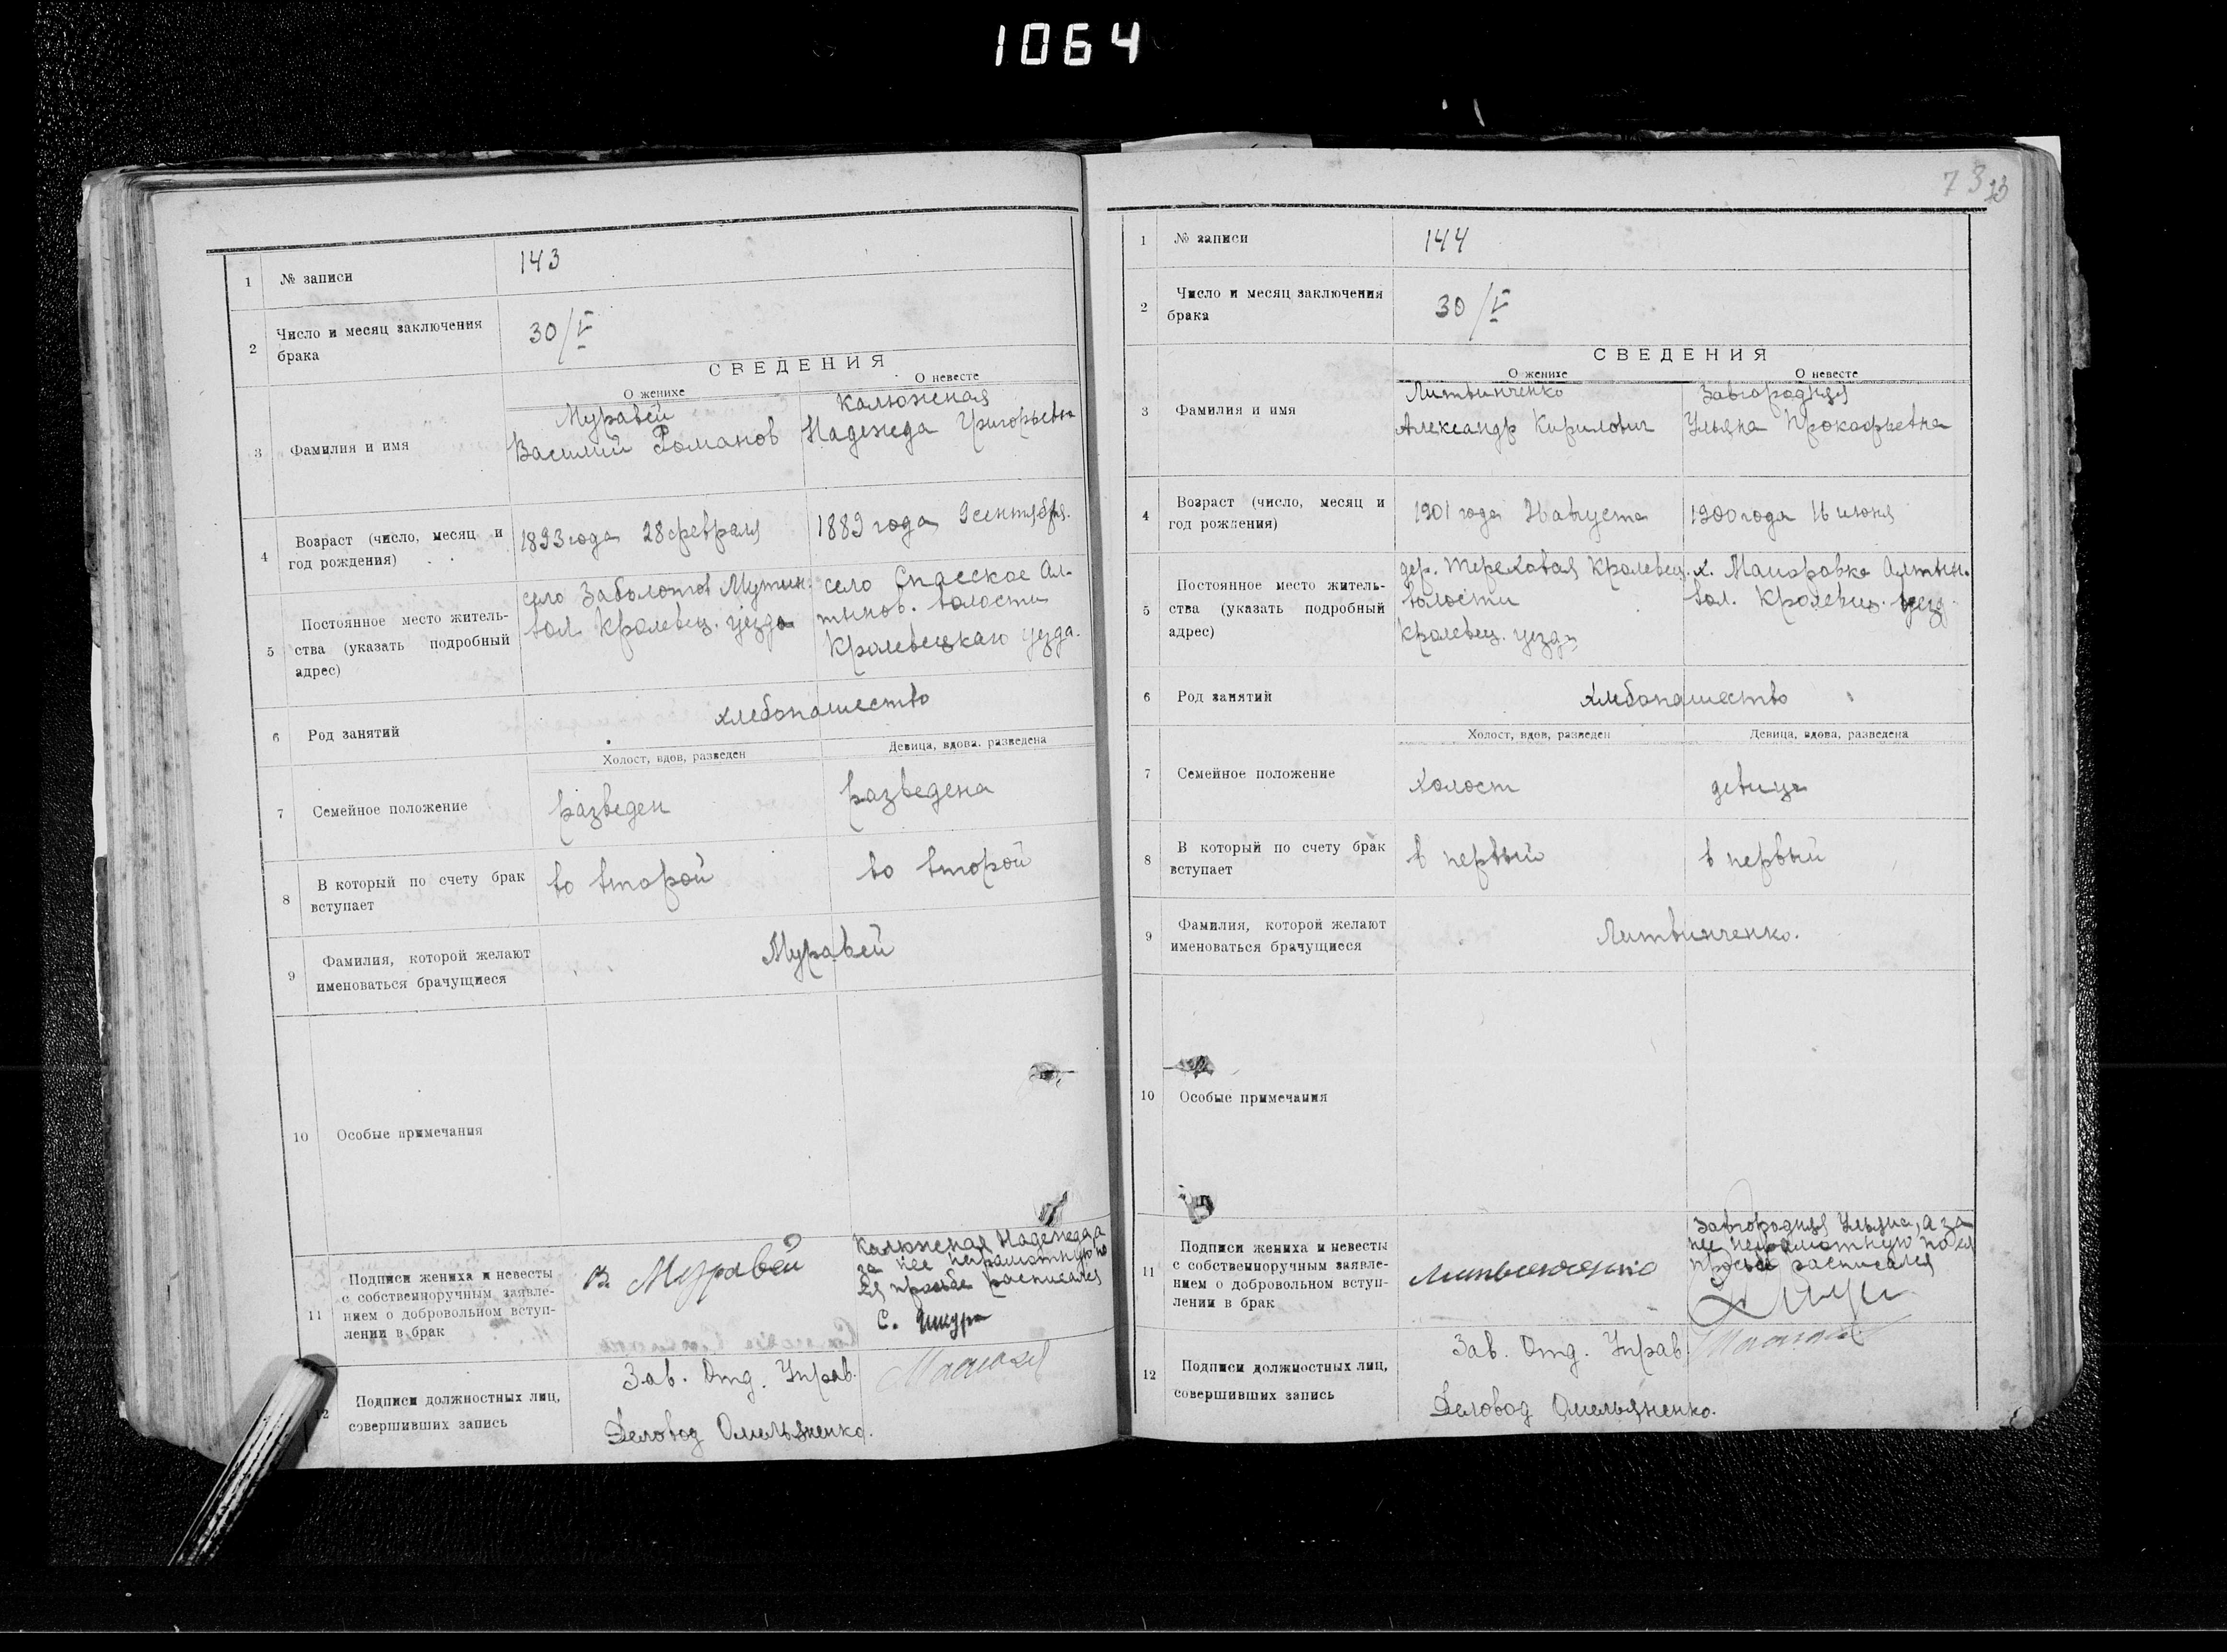 1064
1 № записи 143
2 Число и месяц заключения
брака 30/V
СВЕДЕНИЯ
О женихе О невесте
3 Фамилия и имя
Муравей Калюжная
Василий Романов Надежда Григорьевна
4 Возраст (число, месяц и
год рождения)
1893 года 28 февраля 1889 года 9 сентября.
5 Постоянное место житель-
ства (указать подробный
адрес)
село Заболотов Мутин. село Спасское Ал-
вол. Кролевец. уезда тынов. волости
Кролевецкаго уезда.
6 Род занятий хлебопашество
Холост, вдов, разведен Девица, вдова, разведена
7 Семейное положение разведен разведена
8 В который по счету брак
вступает во второй во второй
9 Фамилия, которой желают
именоваться брачущиеся Муравей
10 Особые примечания
11 Подписи жениха и невесты
с собственноручным заявле-
нием о добровольном вступ-
лении в брак
В. Муравей
Калюжная Надежда, а
за нее неграмотную по
ея просьбе расписался
С. Шкура
12 Подписи должностных лиц,
совершивших запись
Зав. Отд. Управ.
Деловод Омельяненко.
73
1 № записи 144
2 Число и месяц заключения
брака 30/V
СВЕДЕНИЯ
О женихе О невесте
3 Фамилия и имя
Литвинченко Завгородняя
Александр Кирилович Ульяна Прокофьевна
4 Возраст (число, месяц и
год рождения)
1901 года августа 1900 года 16 июня
5 Постоянное место житель-
ства (указать подробный
адрес)
дер. Тереховая Кролевец. х. Маиоровка Алтын.
волости вол. Кролевец. уезд.
Кролевец. уезда
6 Род занятий хлебопашество
Холост, вдов, разведен Девица, вдова, разведена
7 Семейное положение холост девица
8 В который по счету брак
вступает в первый в первый
9 Фамилия, которой желают
именоваться брачущиеся Литвинченко.
10 Особые примечания
11 Подписи жениха и невесты
с собственноручным заявле-
нием о добровольном вступ-
лении в брак
Литвинченко
Завгородняя Ульяна, а за
нее неграмотную по ея
просьбе расписался
12 Подписи должностных лиц,
совершивших запись
Зав. Отд. Управ.
Деловод Омельяненко.